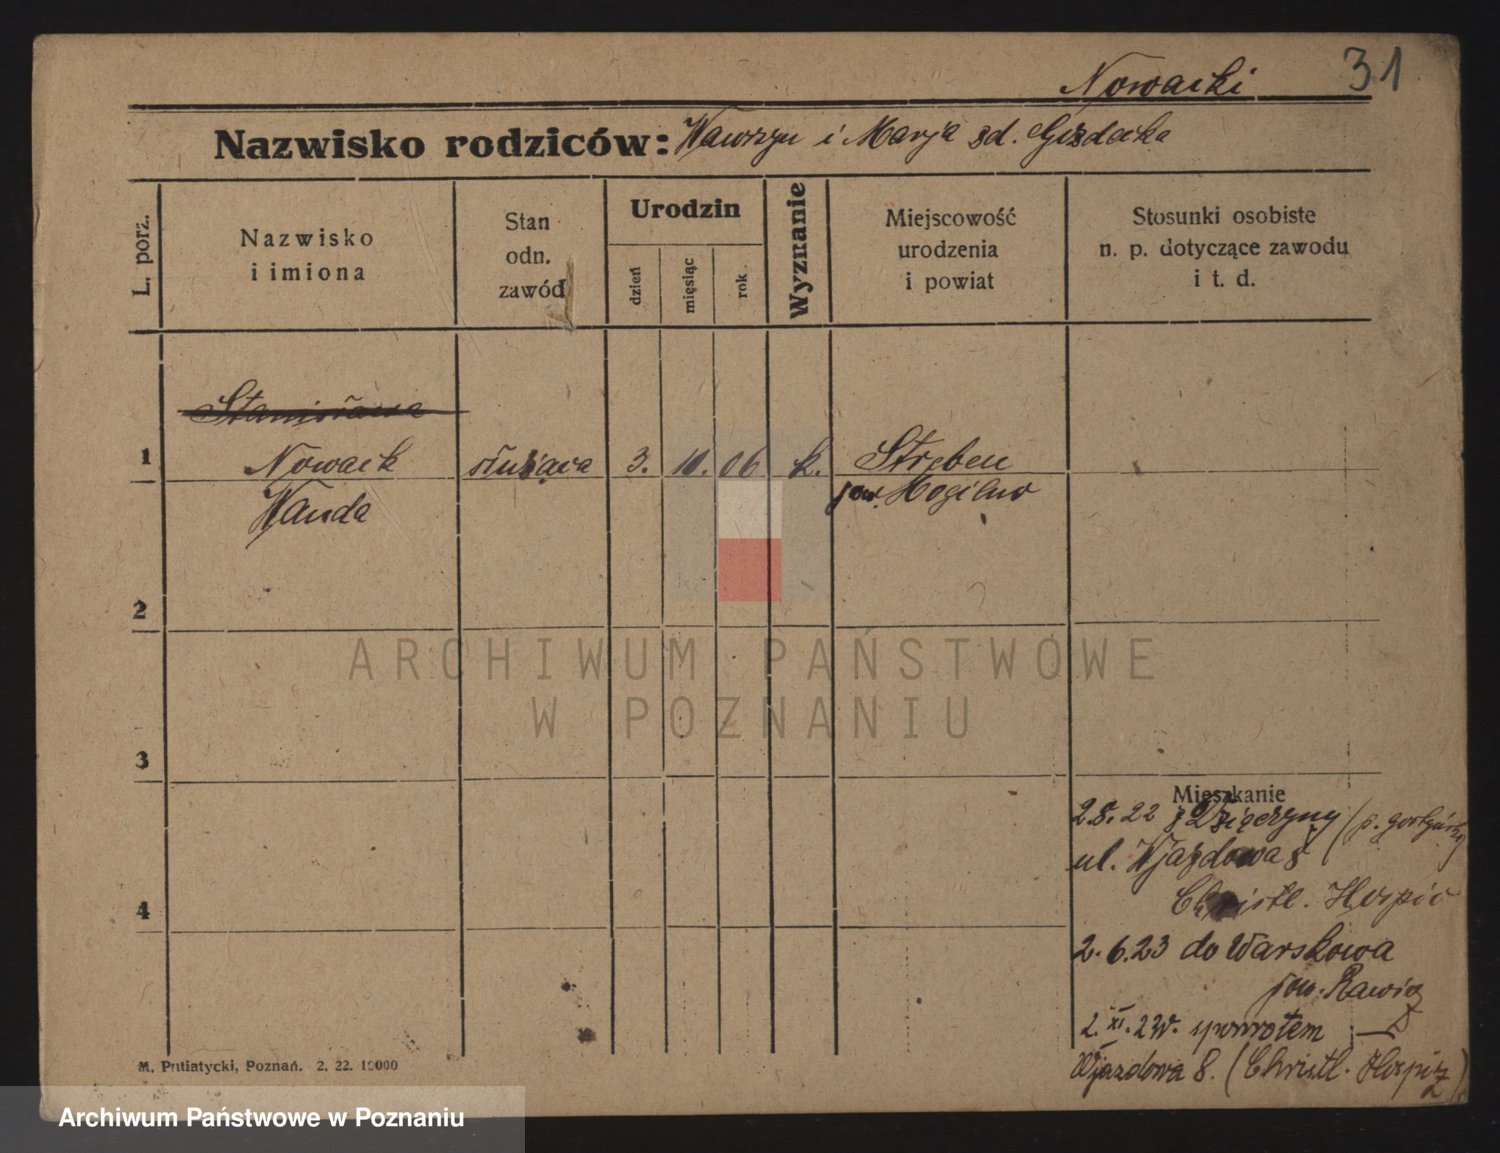 31
Nowacki
Nazwisko rodziców: Wawrzyn i Marja zd. Gizdecka
L. porz.
Nazwisko
i imiona
Stan
odn.
zawód
Urodzin
dzień
miesiąc
rok
Wyznanie
Miejscowość
urodzenia
i powiat
Stosunki osobiste
n. p. dotyczące zawodu
i t. d.
Stanisława
1 Nowack służąca 3. 10. 06 k. Streben
Wanda pow. Mogilno
2
3
4
Mieszkanie
28. 22 z (p.
ul. Wjazdowa 8
Christl. Hospic
2. 6. 23 do Warskowa
pow. Rawicz
2. XI. spowrotem
Wjazdowa 8. (Christl. Hospiz)
M. Putiatycki, Poznań. 2. 22. 10000
ARCHIWUM PAŃSTWOWE
W POZNANIU
Archiwum Państwowe w Poznaniu